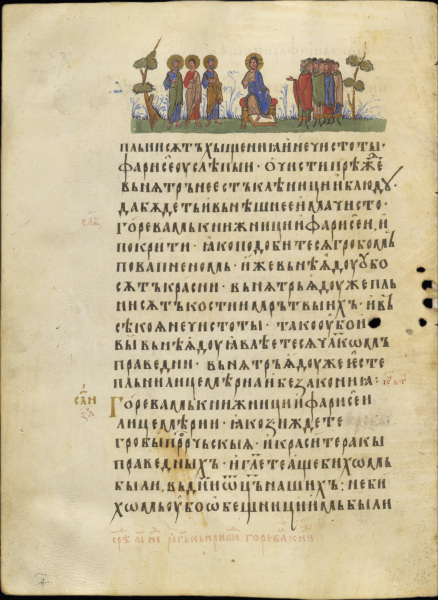 пльни сѫтъ хыщениꙗ и нечистоты·
фарисею слѣпыи· очисти прѣжⷣе
вънѫтрънее стъкленици и блюду·
да бѫдетъ и вънѣшнее има чисто·
горе вамь книжници и фарисеи, и
покрити· ꙗко подобитесѧ гробомь
повапненомь· иже вънѣѫдоу убо
сѫтъ красни· вънѫтръѫдоуже пль
ни сѫтъ костии мрътвыихъ· и въ
сѣкоѧ нечистоты· тако оубо и
вы вънѣѫдоу ꙗвлѣетесѧ чл҃комъ
праведни· вънѫтръѫдоуже есте
пльни лицемѣриа и безакониа:
Горе вамь книжници и фарисеи
лицемѣрии· ꙗко зиждете
гробы прⷪ҇рчьскыѧ· и красите ракы
праведныхъ· и гл҃ете аще бихомь
были, въ дни ѿц҃ъ нашихъ; не би
хомь оубо ѡбещници имь были